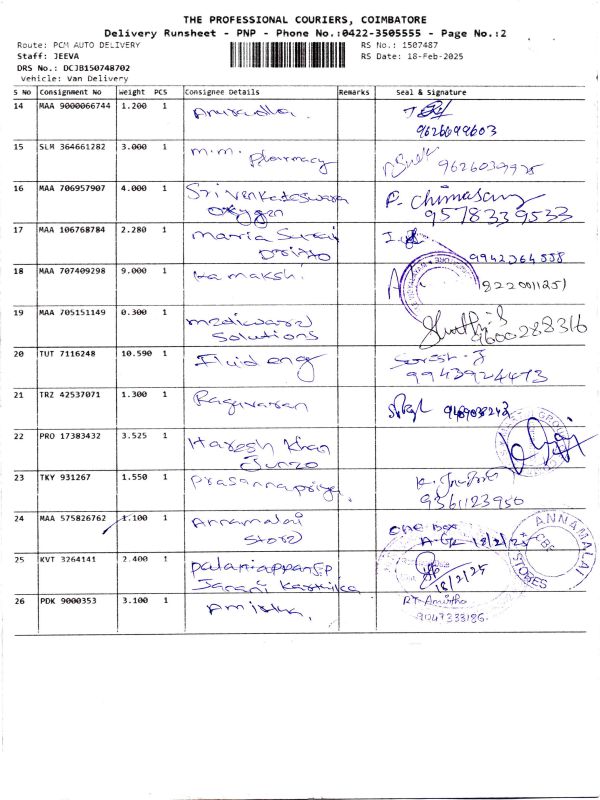 THE PROFESSIONAL COURIERS, COIMBATORE
Delivery Runsheet - PNP - Phone No.:0422-3505555 - Page No.:2
Route: PCM AUTO DELIVERY RS No.: 1507487
Staff: JEEVA RS Date: 18-Feb-2025
DRS No.: DCJB150748702
Vehicle: Van Delivery
S No Consignment No Weight PCS Consignee Details Remarks Seal & Signature
14 MAA 9000066744 1.200 1
9626699603
15 SLM 364661282 3.000 1 M.M. Pharmacy
16 MAA 706957907 4.000 1 Sri Venkadeswara P.
oxygen 9578339533
17 MAA 106768784 2.280 1 Maria
9942364558
18 MAA 707409298 9.000 1 Kamakshi
8220011251
19 MAA 705151149 0.300 1 9600288316
Solutions
20 TUT 7116248 10.590 1 Fluid eng Suresh. J
9943924473
21 TRZ 42537071 1.300 1 Raguvaran
22 PRO 17383432 3.525 1 Haresh Khan
23 TKY 931267 1.550 1 Prasannapriya. K.
9361123950
24 MAA 575826762 1.100 1 Annamalai one Box
18/2/25
ANNAMALAI
CBE
STORES
25 KVT 3264141 2.400 1 palaniappan
18/2/25
26 PDK 9000353 3.100 1